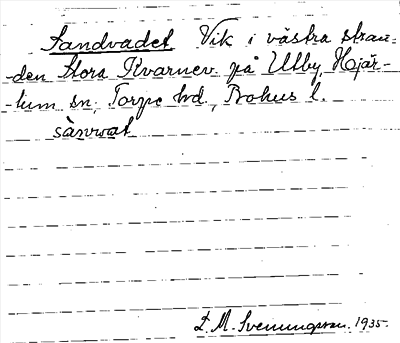 Sandvadet Vik i västra stran-
-den Stora Kvarnev. på Ulby, Hjär-
-tum sn, Torpe hd, Bohus l.
sànvat
M. Svenungsson. 1935.